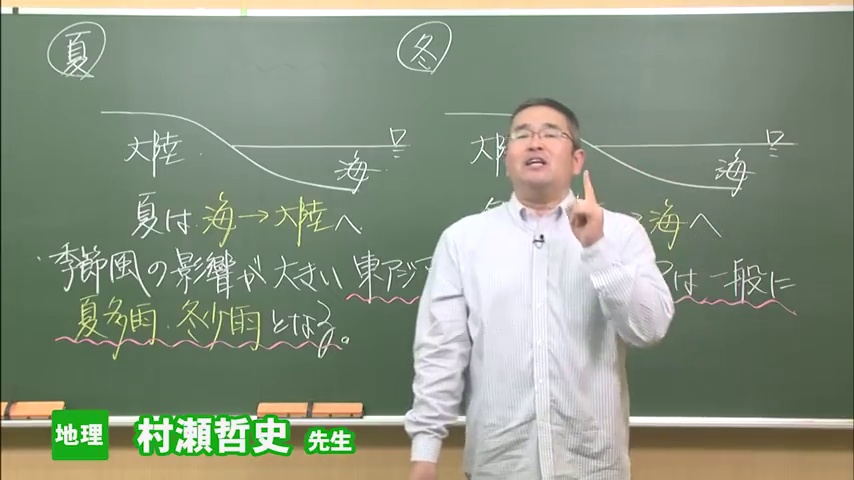 夏
冬
大陸
海
大
海
夏は 海→大陸へ
→海へ
季節風の影響が大きい 東アジア は一般に
夏多雨・冬少雨となる。
地理 村瀬哲史 先生